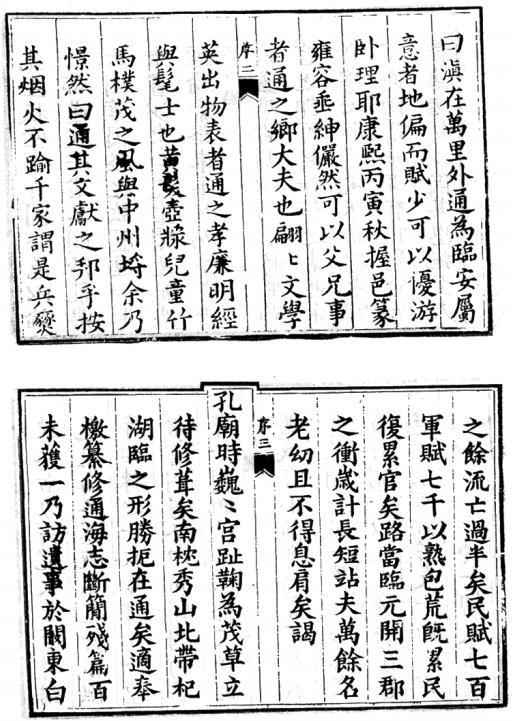 曰滇在萬里外通為臨安屬
意者地偏而賦少可以優游
卧理耶康熙丙寅秋握邑篆
雍容垂紳儼然可以父兄事
者通之鄉大夫也翩〻文學
序二
英出物表者通之孝廉明經
與髦士也黄髮壺漿兒童竹
馬樸茂之風與中州埒余乃
憬然曰通其文獻之邦乎按
其烟火不踰千家謂是兵燹
之餘流亡過半矣民賦七百
軍賦七千以熟包荒旣累民
復累官矣路當臨元開三郡
之衝嵗計長短站夫萬餘名
老幼且不得息肩矣謁
序三
孔廟時巍〻宮趾鞠為茂草立
待修葺矣南枕秀山北帶杞
湖臨之形勝扼在通矣適奉
檄纂修通海志斷簡殘篇百
未獲一乃訪遺事於闗東白